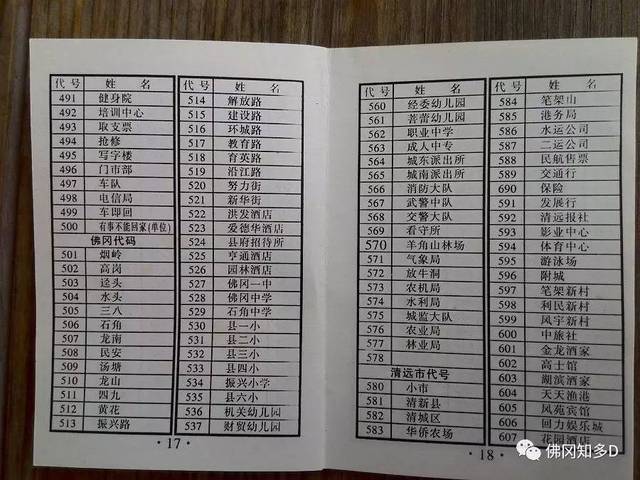 代号 姓名
491 健身院
492 培训中心
493 取支票
494 抢修
495 写字楼
496 门市部
497 车队
498 电信局
499 车即回
500 有事不能回家(单位)
佛冈代码
501 烟岭
502 高岗
503 迳头
504 水头
505 三八
506 石角
507 龙南
508 民安
509 汤塘
510 龙山
511 四九
512 黄花
513 振兴路
代号 姓名
514 解放路
515 建设路
516 环城路
517 教育路
518 育英路
519 沿江路
520 努力街
521 新华街
522 洪发酒店
523 爱德华酒店
524 县府招待所
525 亨通酒店
526 园林酒店
527 佛冈一中
528 佛冈中学
529 石角中学
530 县一小
531 县二小
532 县三小
533 县四小
534 振兴小学
535 县六小
536 机关幼儿园
537 财贸幼儿园
·17·
代号 姓名
560 经委幼儿园
561 菩蕾幼儿园
562 职业中学
563 成人中专
564 城东派出所
565 城南派出所
566 消防大队
567 武警中队
568 交警大队
569 看守所
570 羊角山林场
571 气象局
572 放牛洞
573 农机局
574 水利局
575 城监大队
576 农业局
577 林业局
578
清远市代号
580 小市
581 清新县
582 清城区
583 华侨农场
代号 姓名
584 笔架山
585 港务局
586 水运公司
587 二运公司
588 民航售票
589 交通行
590 保险
591 发展行
592 清远报社
593 影业中心
594 体育中心
595 游泳场
596 附城
597 笔架新村
598 利民新村
599 风宇新村
600 中旅社
601 金龙酒家
602 高士馆
603 湖滨酒家
604 天天渔港
605 凤苑宾馆
606 回力娱乐城
607 花园酒店
·18·
佛冈知多D